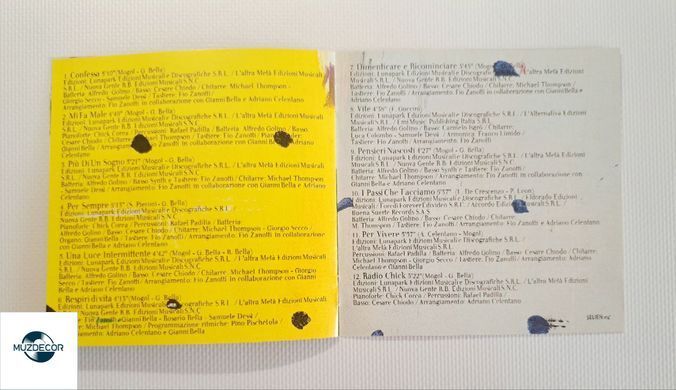 1. Confesso 5'10" (Mogol - G. Bella)
Edizioni: Lunapark Edizioni Musicali e Discografiche S.R.L. / L'altra Metà Edizioni Musicali
S.R.L. / Nuova Gente R.B. Edizioni Musicali S.N.C.
Batteria: Alfredo Golino / Basso: Cesare Chiodo / Chitarre: Michael Thompson -
Giorgio Secco - Samuele Dessì / Tastiere: Fio Zanotti
Arrangiamento: Fio Zanotti in collaborazione con Gianni Bella e Adriano Celentano
2. Mi Fa Male (Mogol - G. Bella)
Edizioni: Lunapark Edizioni Musicali e Discografiche S.R.L. / L'altra Metà Edizioni Musicali
S.R.L. / Nuova Gente R.B. Edizioni Musicali S.N.C.
Pianoforte: Chick Corea / Percussioni: Rafael Padilla / Batteria: Alfredo Golino / Basso:
Cesare Chiodo / Chitarre: Michael Thompson / Tastiere: Fio Zanotti
Arrangiamento: Fio Zanotti in collaborazione con
Gianni Bella e Adriano Celentano
3. Più Di Un Sogno 5'21" (Mogol - G. Bella)
Edizioni: Lunapark Edizioni Musicali e Discografiche S.R.L. / L'altra Metà Edizioni Musicali
S.R.L. / Nuova Gente R.B. Edizioni Musicali S.N.C.
Batteria: Alfredo Golino / Basso: Cesare Chiodo / Chitarre: Michael Thompson
- Samuele Dessì / Arrangiamento: Fio Zanotti in collaborazione con Gianni Bella e Adriano
Celentano
4. Per Sempre (S. Pierini - G. Bella)
Edizioni: Lunapark Edizioni Musicali e Discografiche S.R.L. / L'altra Metà Edizioni Musicali
S.R.L. / Nuova Gente R.B. Edizioni Musicali S.N.C.
Pianoforte: Chick Corea / Percussioni: Rafael Padilla / Batteria:
Alfredo Golino / Basso: Cesare Chiodo / Chitarre: Michael Thompson - Giorgio Secco /
Organo: Gianni Bella / Tastiere: Fio Zanotti / Arrangiamento: Fio Zanotti in collaborazione
con Gianni Bella e Adriano Celentano
5. Una Luce Intermittente 4'42" (Mogol - G. Bella - R. Bella)
Edizioni: Lunapark Edizioni Musicali e Discografiche S.R.L. / L'altra Metà Edizioni Musicali
S.R.L. / Nuova Gente R.B. Edizioni Musicali S.N.C.
Batteria: Alfredo Golino / Basso: Cesare Chiodo / Chitarre: Michael Thompson - Giorgio
Secco / Tastiere: Fio Zanotti / Arrangiamento: Fio Zanotti in collaborazione con Gianni
Bella e Adriano Celentano
6. Respiri di vita (Mogol - G. Bella)
Edizioni: Lunapark Edizioni Musicali e Discografiche S.R.L. / L'altra Metà Edizioni Musicali
S.R.L. / Nuova Gente R.B. Edizioni Musicali S.N.C.
Fio Zanotti - Rosario Bella - Samuele Dessì /
Michael Thompson / Programmazione ritmiche: Pino Pischetola /
Adriano Celentano e Gianni Bella
7. Dimenticare e Ricominciare 5'45" (Mogol
Edizioni: Lunapark Edizioni Musicali e Discografiche L'altra Metà Edizioni
Musicali S.R.L. / Nuova Gente R.B. Edizioni Musicali S.N.C.
Batteria: Alfredo Golino / Basso: Cesare Chiodo / Chitarre: Michael Thompson /
Tastiere: Fio Zanotti / Arrangiamento: Fio Zanotti in collaborazione con Gianni Bella e
Adriano Celentano
8. Vite (F. Guccini)
Edizioni: Lunapark Edizioni Musicali e Discografiche S.R.L. / L'Alternativa Edizioni
Musicali S.R.L. / Emi Music Publishing Italia S.R.L.
Batteria: Alfredo Golino / Basso: Chitarre:
Luca Colombo - Samuele Dessì / Armonica: Franco Limido /
Tastiere: Fio Zanotti / Arrangiamento: Fio Zanotti
9. Pensieri Nascosti 4'27" (Mogol - G. Bella)
Edizioni: Lunapark Edizioni Musicali e Discografiche S.R.L. / L'altra Metà Edizioni
Musicali S.R.L. / Nuova Gente R.B. Edizioni Musicali S.N.C.
Batteria: Alfredo Golino / Basso Synth e Tastiere: Fio Zanotti /
Chitarre: Michael Thompson / Arrangiamento: Fio Zanotti in collaborazione con
Gianni Bella e Adriano Celentano
10. I Passi Che Facciamo (E. De Crescenzo - P. Leon)
Edizioni: Lunapark Edizioni Musicali e Discografiche S.R.L. / Edizioni
Musicali / Fuordi Forever / Accordo Edizioni Musicali /
Buena Suerte Records S.A.S.
Batteria: Alfredo Golino / Basso: Cesare Chiodo / Chitarre:
M. Thompson / Tastiere: Fio Zanotti / Arrangiamento: Fio Zanotti
11. Per Vivere (A. Celentano - Mogol)
Edizioni: Lunapark Edizioni Musicali e Discografiche S.R.L. /
L'altra Metà Edizioni Musicali S.R.L.
Batteria: Alfredo Golino / Basso: Cesare Chiodo / Chitarre:
Michael Thompson - Giorgio Secco / Tastiere: Fio Zanotti / Arrangiamento: Adriano
Celentano e Gianni Bella
12. Radio Chick 5'22" (Mogol - G. Bella)
Edizioni: Lunapark Edizioni Musicali e Discografiche S.R.L. / L'altra Metà Edizioni
Musicali S.R.L. / Nuova Gente R.B. Edizioni Musicali S.N.C.
Pianoforte: Chick Corea / Percussioni: Rafael Padilla /
Basso: Cesare Chiodo / Chitarre: Arrangiamento: Adriano Celentano
MUZDECOR